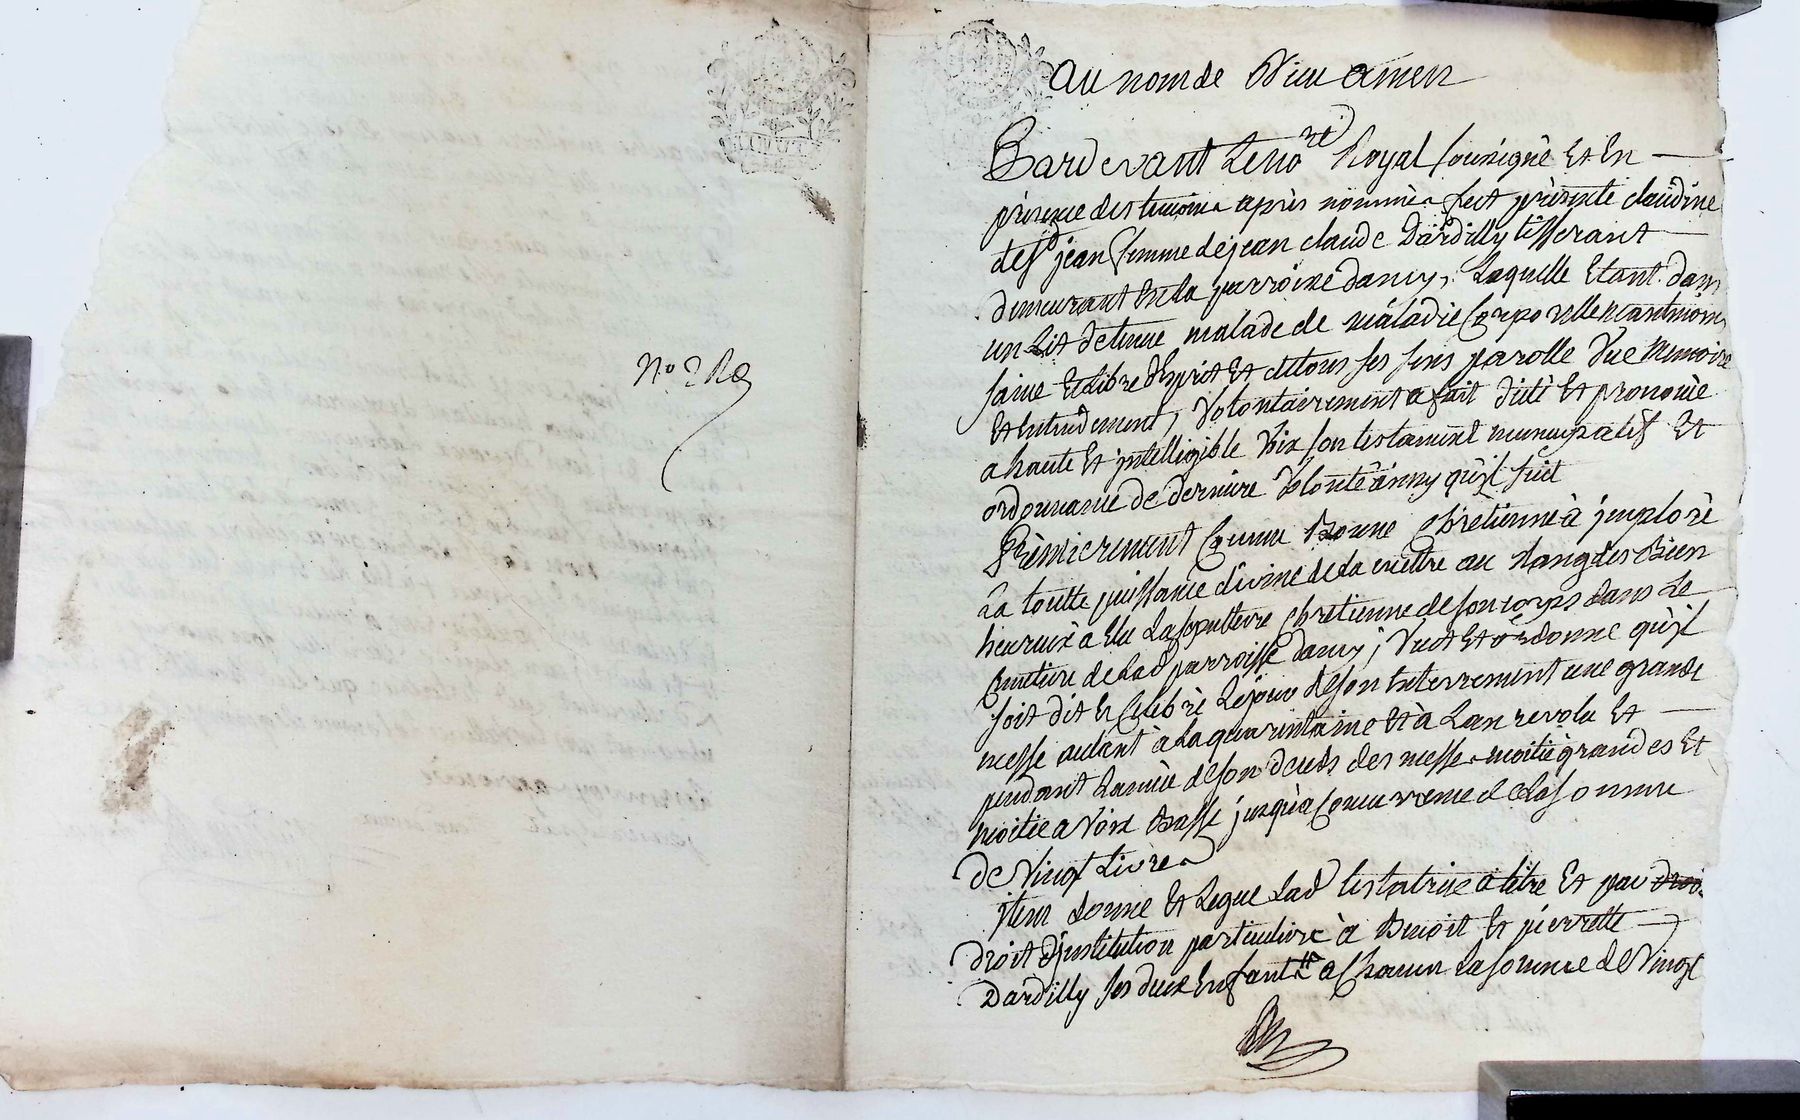 N° 2
au nom de Dieu amen
Pardevant Le no re Royal soussigné Et En
présence des temoins après nommés fut présente claudine
dest jean femme de jean claude Dardilly tisserant
demeurant En la parroisse dancy, Laquelle Etant dans
un Lit detenue malade de maladie Corporelle neantmoins
saine Et Libre d'Esprit Et de tous ses sens parolle Vüe memoire
Et Entendement, Volontairement a fait dicté Et prononcé
a haute Et jntelligible Voix son testament nuncupatif Et
ordonnance de derniere Volonté ainsy qu'jl suit
Premierement Comme Bonne Chrétienne à jmploré
La toutte puissance divine de La mettre au Rang des Bien
heureux à Elu La sepulture chretienne de son corps dans Le
Cimetiere de Lad parroisse dancy, Veut Et ordonne qu'jl
soit dit Et Celebré Le jour de son Enterrement une grande
messe autant à La quarantaine Et à Lan revolu Et
pendant Lannée de son deceds des messes moitié grandes Et
moitié a Voix Basse jusqu'à Concurrence de La somme
de Vingt Livres
jtem donne Et Legue Lad testatrice a titre Et par droi
droit d'jnstitution particuliere à Benoit Et pierrette
Dardilly ses deux Enfants a Chacun La somme de Vingt